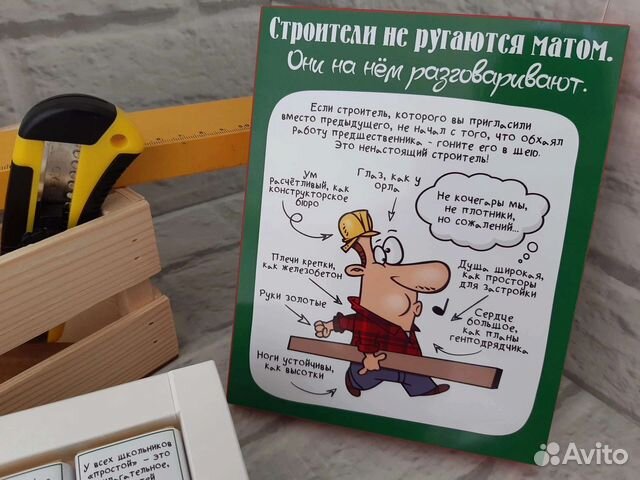 Строители не ругаются матом.
Они на нём разговаривают.
Если строитель, которого вы пригласили
вместо предыдущего, не начал с того, что обхаял
работу предшественника - гоните его в шею.
Это ненастоящий строитель!
Ум
расчётливый, как
конструкторское
бюро
Глаз, как у
орла
Не кочегары мы,
не плотники,
но сожалений...
Плечи крепки,
как железобетон
Душа широкая,
как просторы
для застройки
Руки золотые
Сердце
большое,
как планы
генподрядчика
Ноги устойчивы,
как высотки
У всех школьников
«простой» — это
Avito